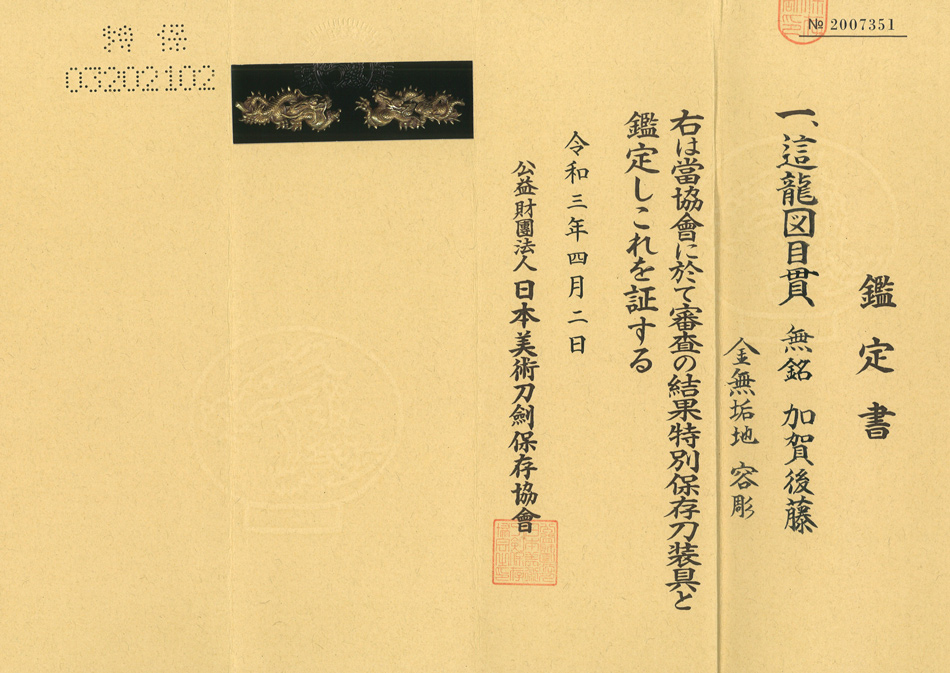 № 2007351
鑑定書
一、這龍図目貫 無銘 加賀後藤
金無垢地 容彫
右は當協會に於て審査の結果特別保存刀装具と
鑑定しこれを証する
令和三年四月二日
公益財團法人 日本美術刀劍保存協會
特保
03202102